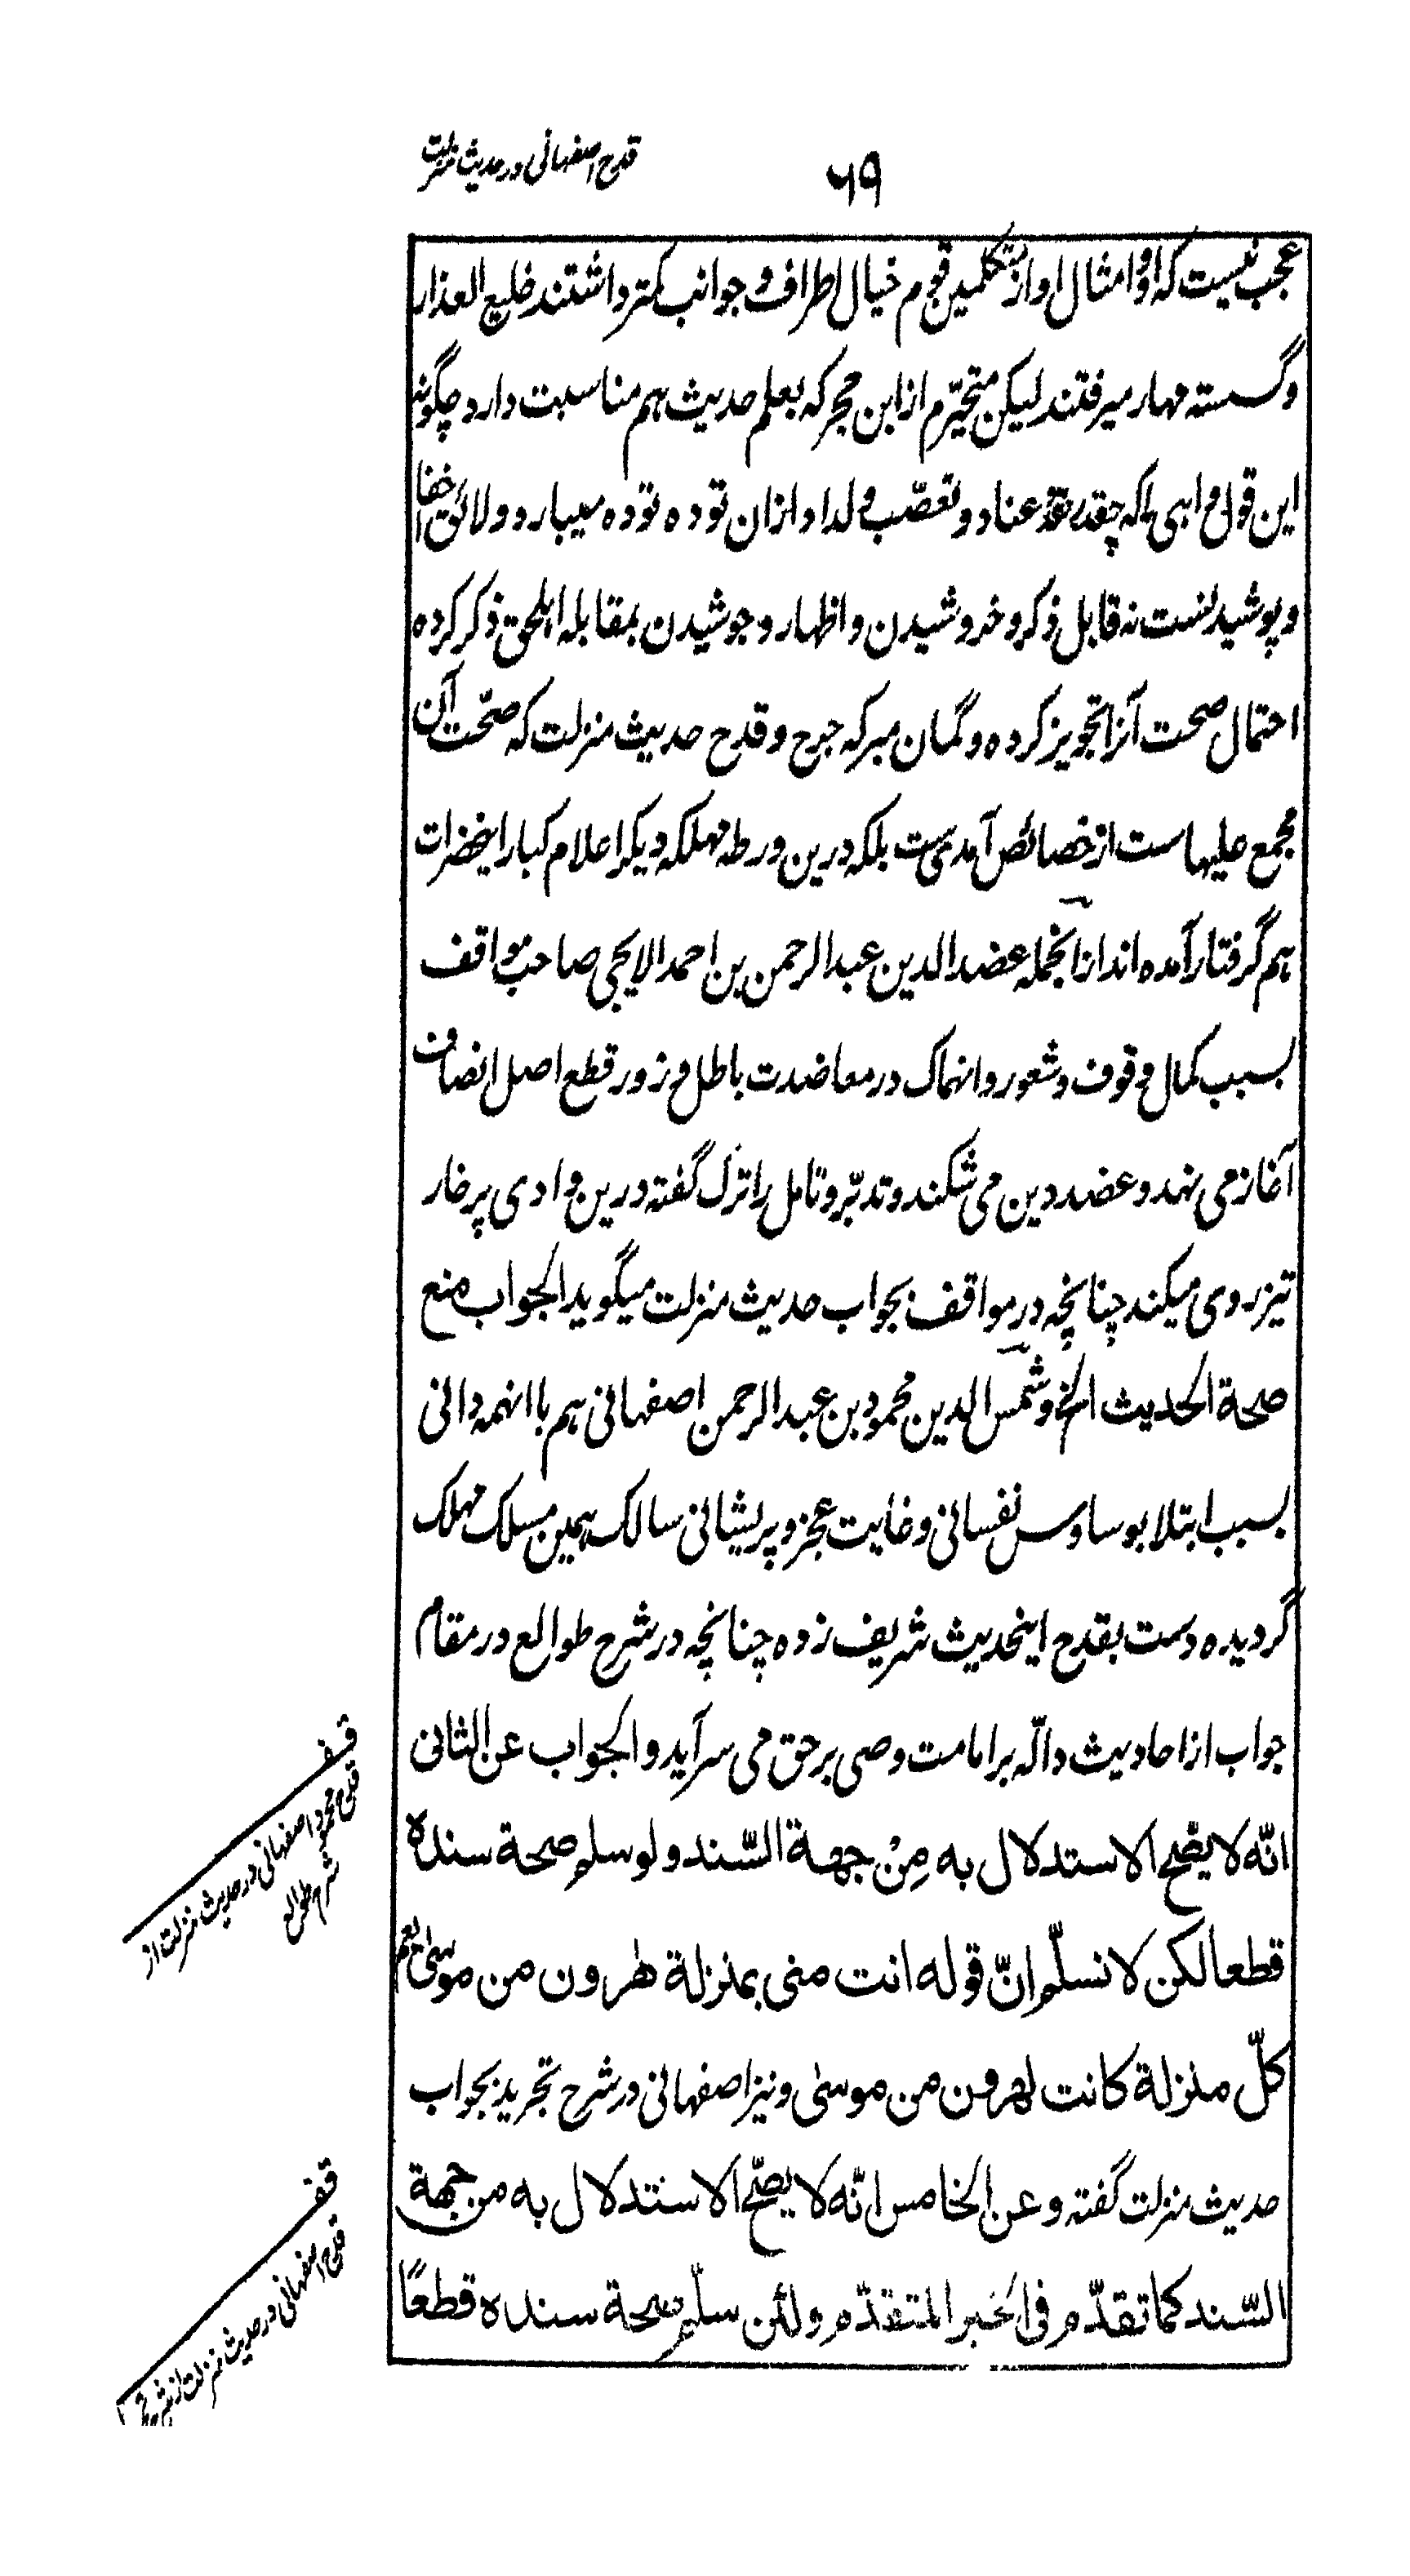 ۶۹
قدح اصفهانی در حدیث منزلت
عجب نیست که او و امثال او از متکلمین قوم خیال اطراف و جوانب کمتر داشتند خلیع العذار
و گسسته مهار میرفتند لیکن متحیّرم از ابن حجر که بعلم حدیث هم مناسبت دارد چگونه
این قول واهی را که چقدر عناد و تعصّب و لداد ازان توده توده میبارد و لائق اخفا
و پوشیدنست نه قابل ذکر و خروشیدن و اظهار و جوشیدن بمقابله اهلحق ذکر کرده
احتمال صحت آنرا تجویز کرده و گمان مبر که جرح و قدح حدیث منزلت که صحّت آن
مجمع علیهاست از خصائص آمدی ست بلکه درین ورطه مهلکه دیگر اعلام کبار اینحضرات
هم گرفتار آمده اند ازانجمله عضد الدین عبد الرحمن بن احمد الایجی صاحب مواقف
بسبب کمال وقوف و شعور و انهماک در معاضدت باطل و زور قطع اصل انصاف
آغاز می نهد و عضد دین می شکند و تدبّر و تامل را ترک گفته درین وادی پر خار
تیزروی میکند چنانچه در مواقف بجواب حدیث منزلت میگوید الجواب منع
صحة الحدیث الخ و شمس الدین محمود بن عبد الرحمن اصفهانی هم با انهمه دانی
بسبب ابتلا بوساوس نفسانی و غایت عجز و پریشانی سالک همین مسلک مهلک
گردیده دست بقدح اینحدیث شریف زده چنانچه در شرح طوالع در مقام
جواب از احادیث دالّه بر امامت وصی بر حق می سراید و الجواب عن الثانی
انّه لا یصحّ الاستدلال به مِنْ جهة السّند و لو سلم صحة سنده
قطعا لکن لا نسلّم انّ قوله انت منی بمنزلة هرون من موسی یعم
کلّ منزلة کانت لهرون من موسی و نیز اصفهانی در شرح تجرید بجواب
حدیث منزلت گفته و عن الخامس انّه لا یصحّ الاستدلال به من جهة
السّند کما تقدّم فی الخَبر المتقدّم و لئن سلّم صحة سنده قطعًا
قف
قدح محمود اصفهانی در حدیث منزلت از
شرح طوالع
قف
قدح اصفهانی در حدیث منزلت از شرح